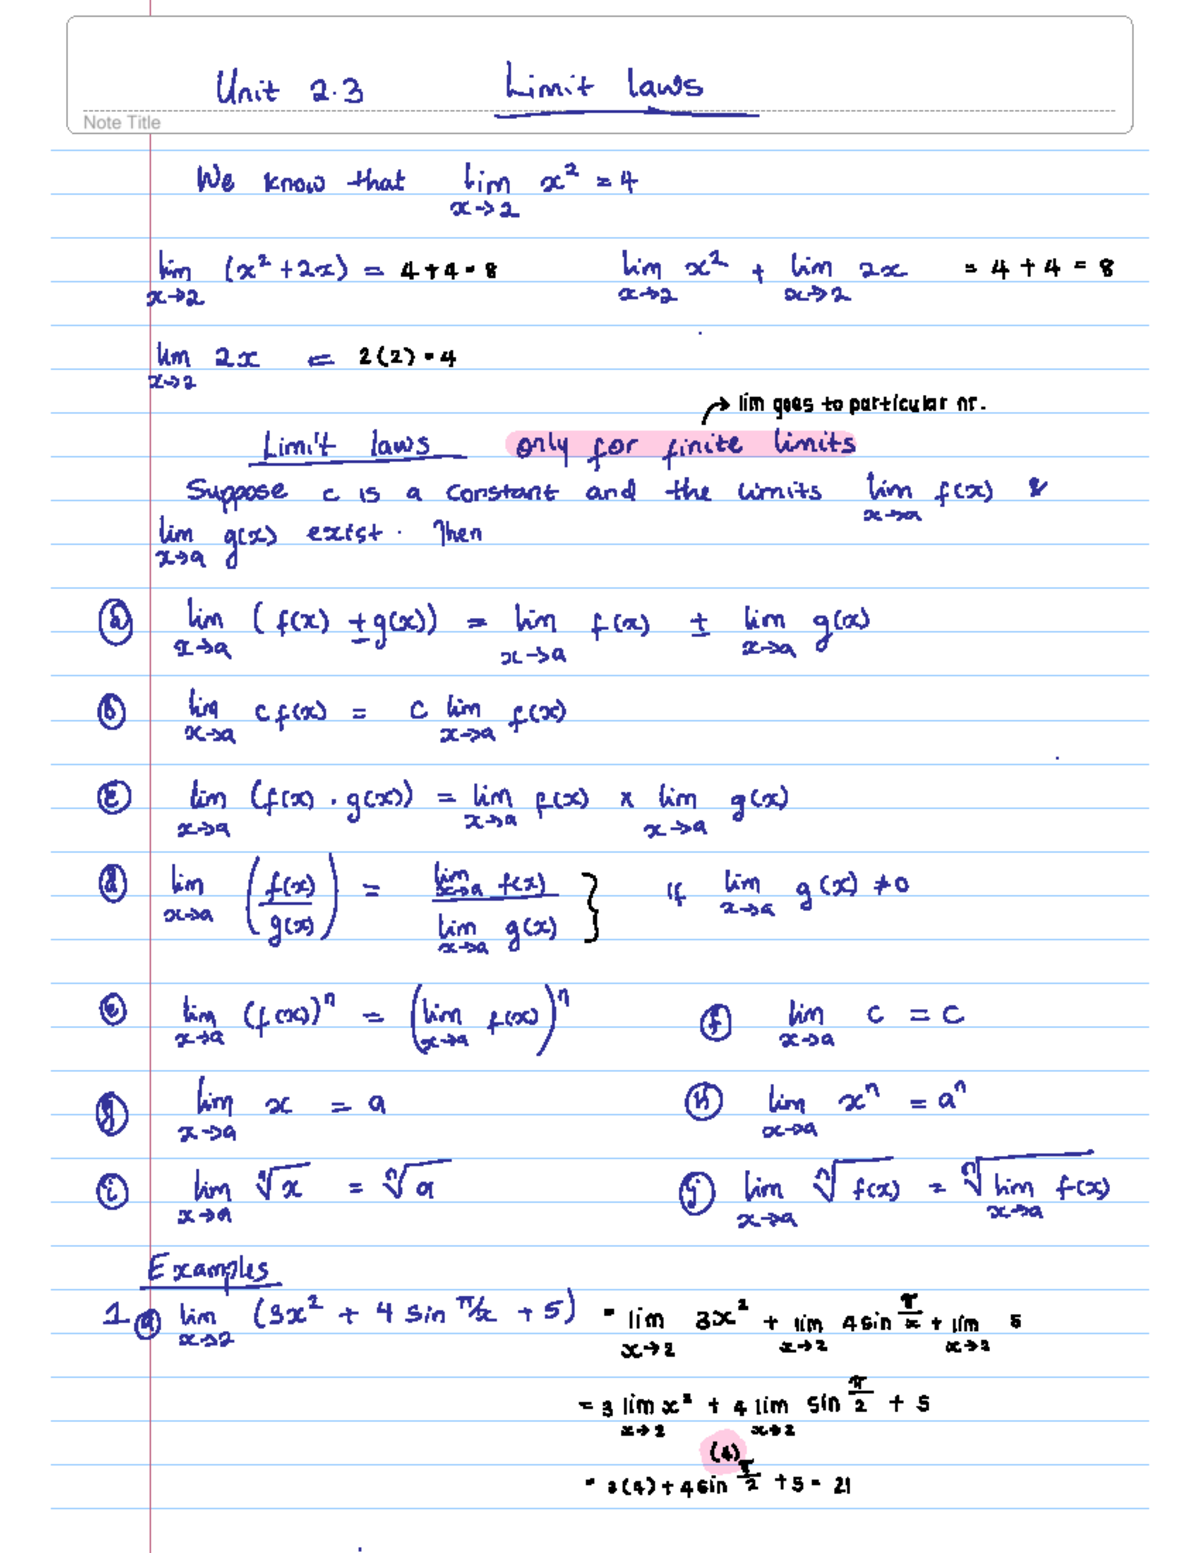 Unit 2.3 Limit laws
Note Title
We know that lim x→2 x² = 4
lim x→2 (x² + 2x) = 4+4=8 lim x→2 x² + lim x→2 2x = 4+4=8
lim x→2 2x = 2(2)=4
→ lim goes to particular nr.
Limit laws only for finite limits
Suppose c is a constant and the limits lim x→a f(x) &
lim x→a g(x) exist. Then
ⓐ lim x→a (f(x) ± g(x)) = lim x→a f(x) ± lim x→a g(x)
ⓑ lim x→a c f(x) = c lim x→a f(x)
ⓒ lim x→a (f(x) . g(x)) = lim x→a f(x) × lim x→a g(x)
ⓓ lim x→a (f(x)/g(x)) = lim x→a f(x) / lim x→a g(x) } if lim x→a g(x) ≠ 0
ⓔ lim x→a (f(x))ⁿ = (lim x→a f(x))ⁿ ⓕ lim x→a c = c
ⓖ lim x→a x = a ⓗ lim x→a xⁿ = aⁿ
ⓘ lim x→a ⁿ√x = ⁿ√a ⓙ lim x→a ⁿ√f(x) = ⁿ√lim x→a f(x)
Examples
1. ⓐ lim x→2 (3x² + 4 sin π/x + 5) = lim x→2 3x² + lim x→2 4sin π/x + lim x→2 5
= 3 lim x→2 x² + 4 lim x→2 sin π/2 + 5
(4)
= 3(4) + 4sin π/2 + 5 = 21